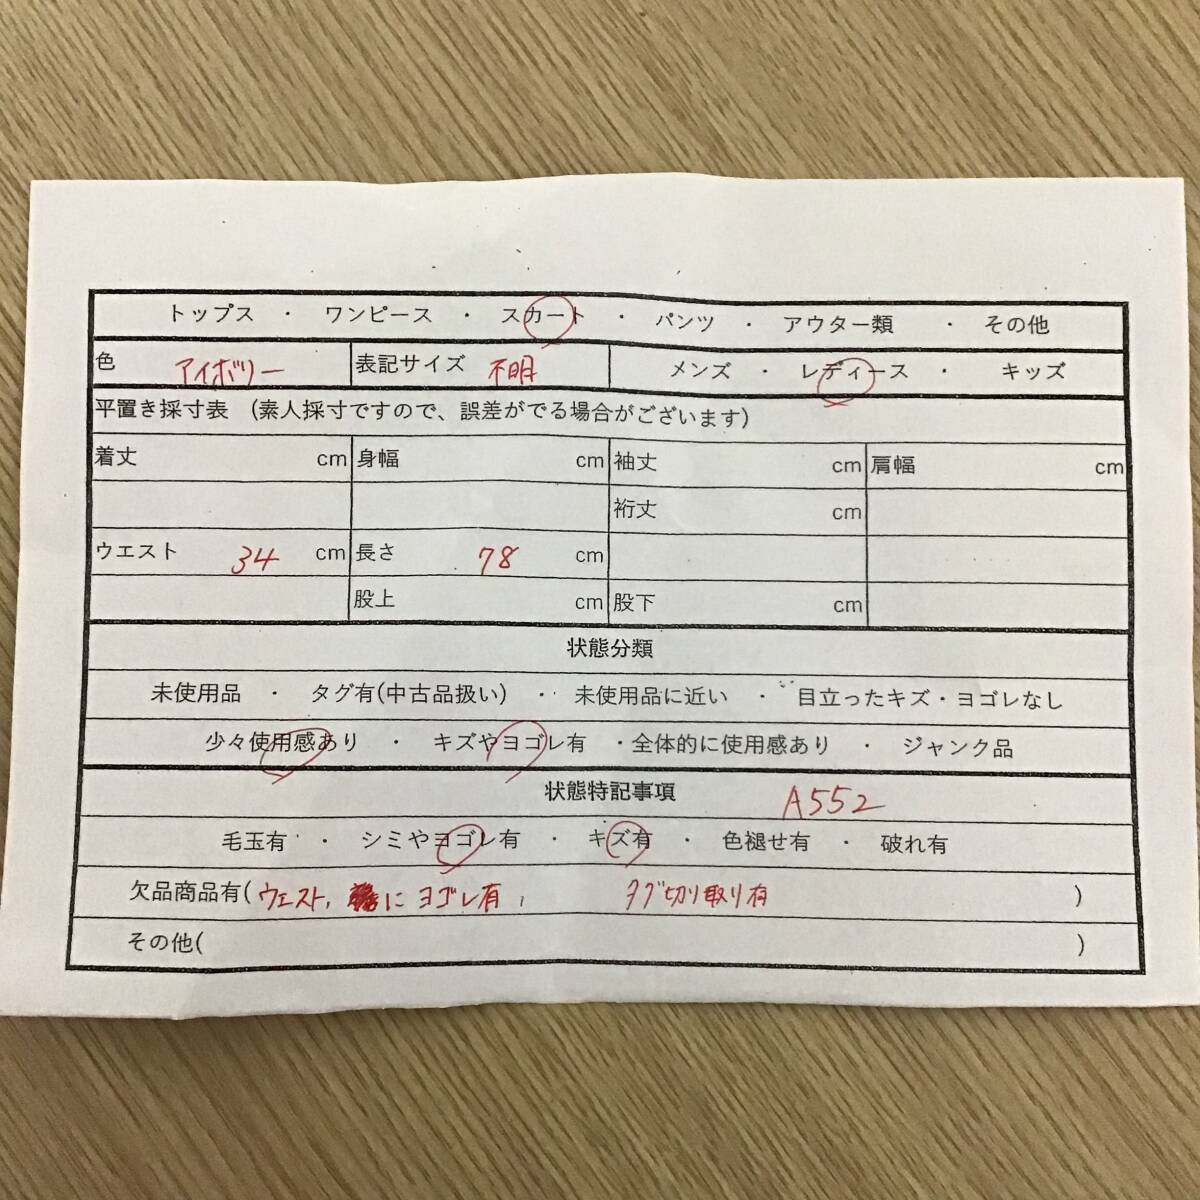 トップス ・ ワンピース ・ スカート ・ パンツ ・ アウター類 ・ その他
色 アイボリー 表記サイズ 不明 メンズ ・ レディース ・ キッズ
平置き採寸表 (素人採寸ですので、誤差がでる場合がございます)
着丈 cm 身幅 cm 袖丈 cm 肩幅 cm
裄丈 cm
ウエスト 34 cm 長さ 78 cm
股上 cm 股下 cm
状態分類
未使用品 ・ タグ有(中古品扱い) ・ 未使用品に近い ・ 目立ったキズ・ヨゴレなし
少々使用感あり ・ キズやヨゴレ有 ・全体的に使用感あり ・ ジャンク品
状態特記事項 A552
毛玉有 ・ シミやヨゴレ有 ・ キズ有 ・ 色褪せ有 ・ 破れ有
欠品商品有(ウエスト, にヨゴレ有, タグ切り取り有 )
その他( )